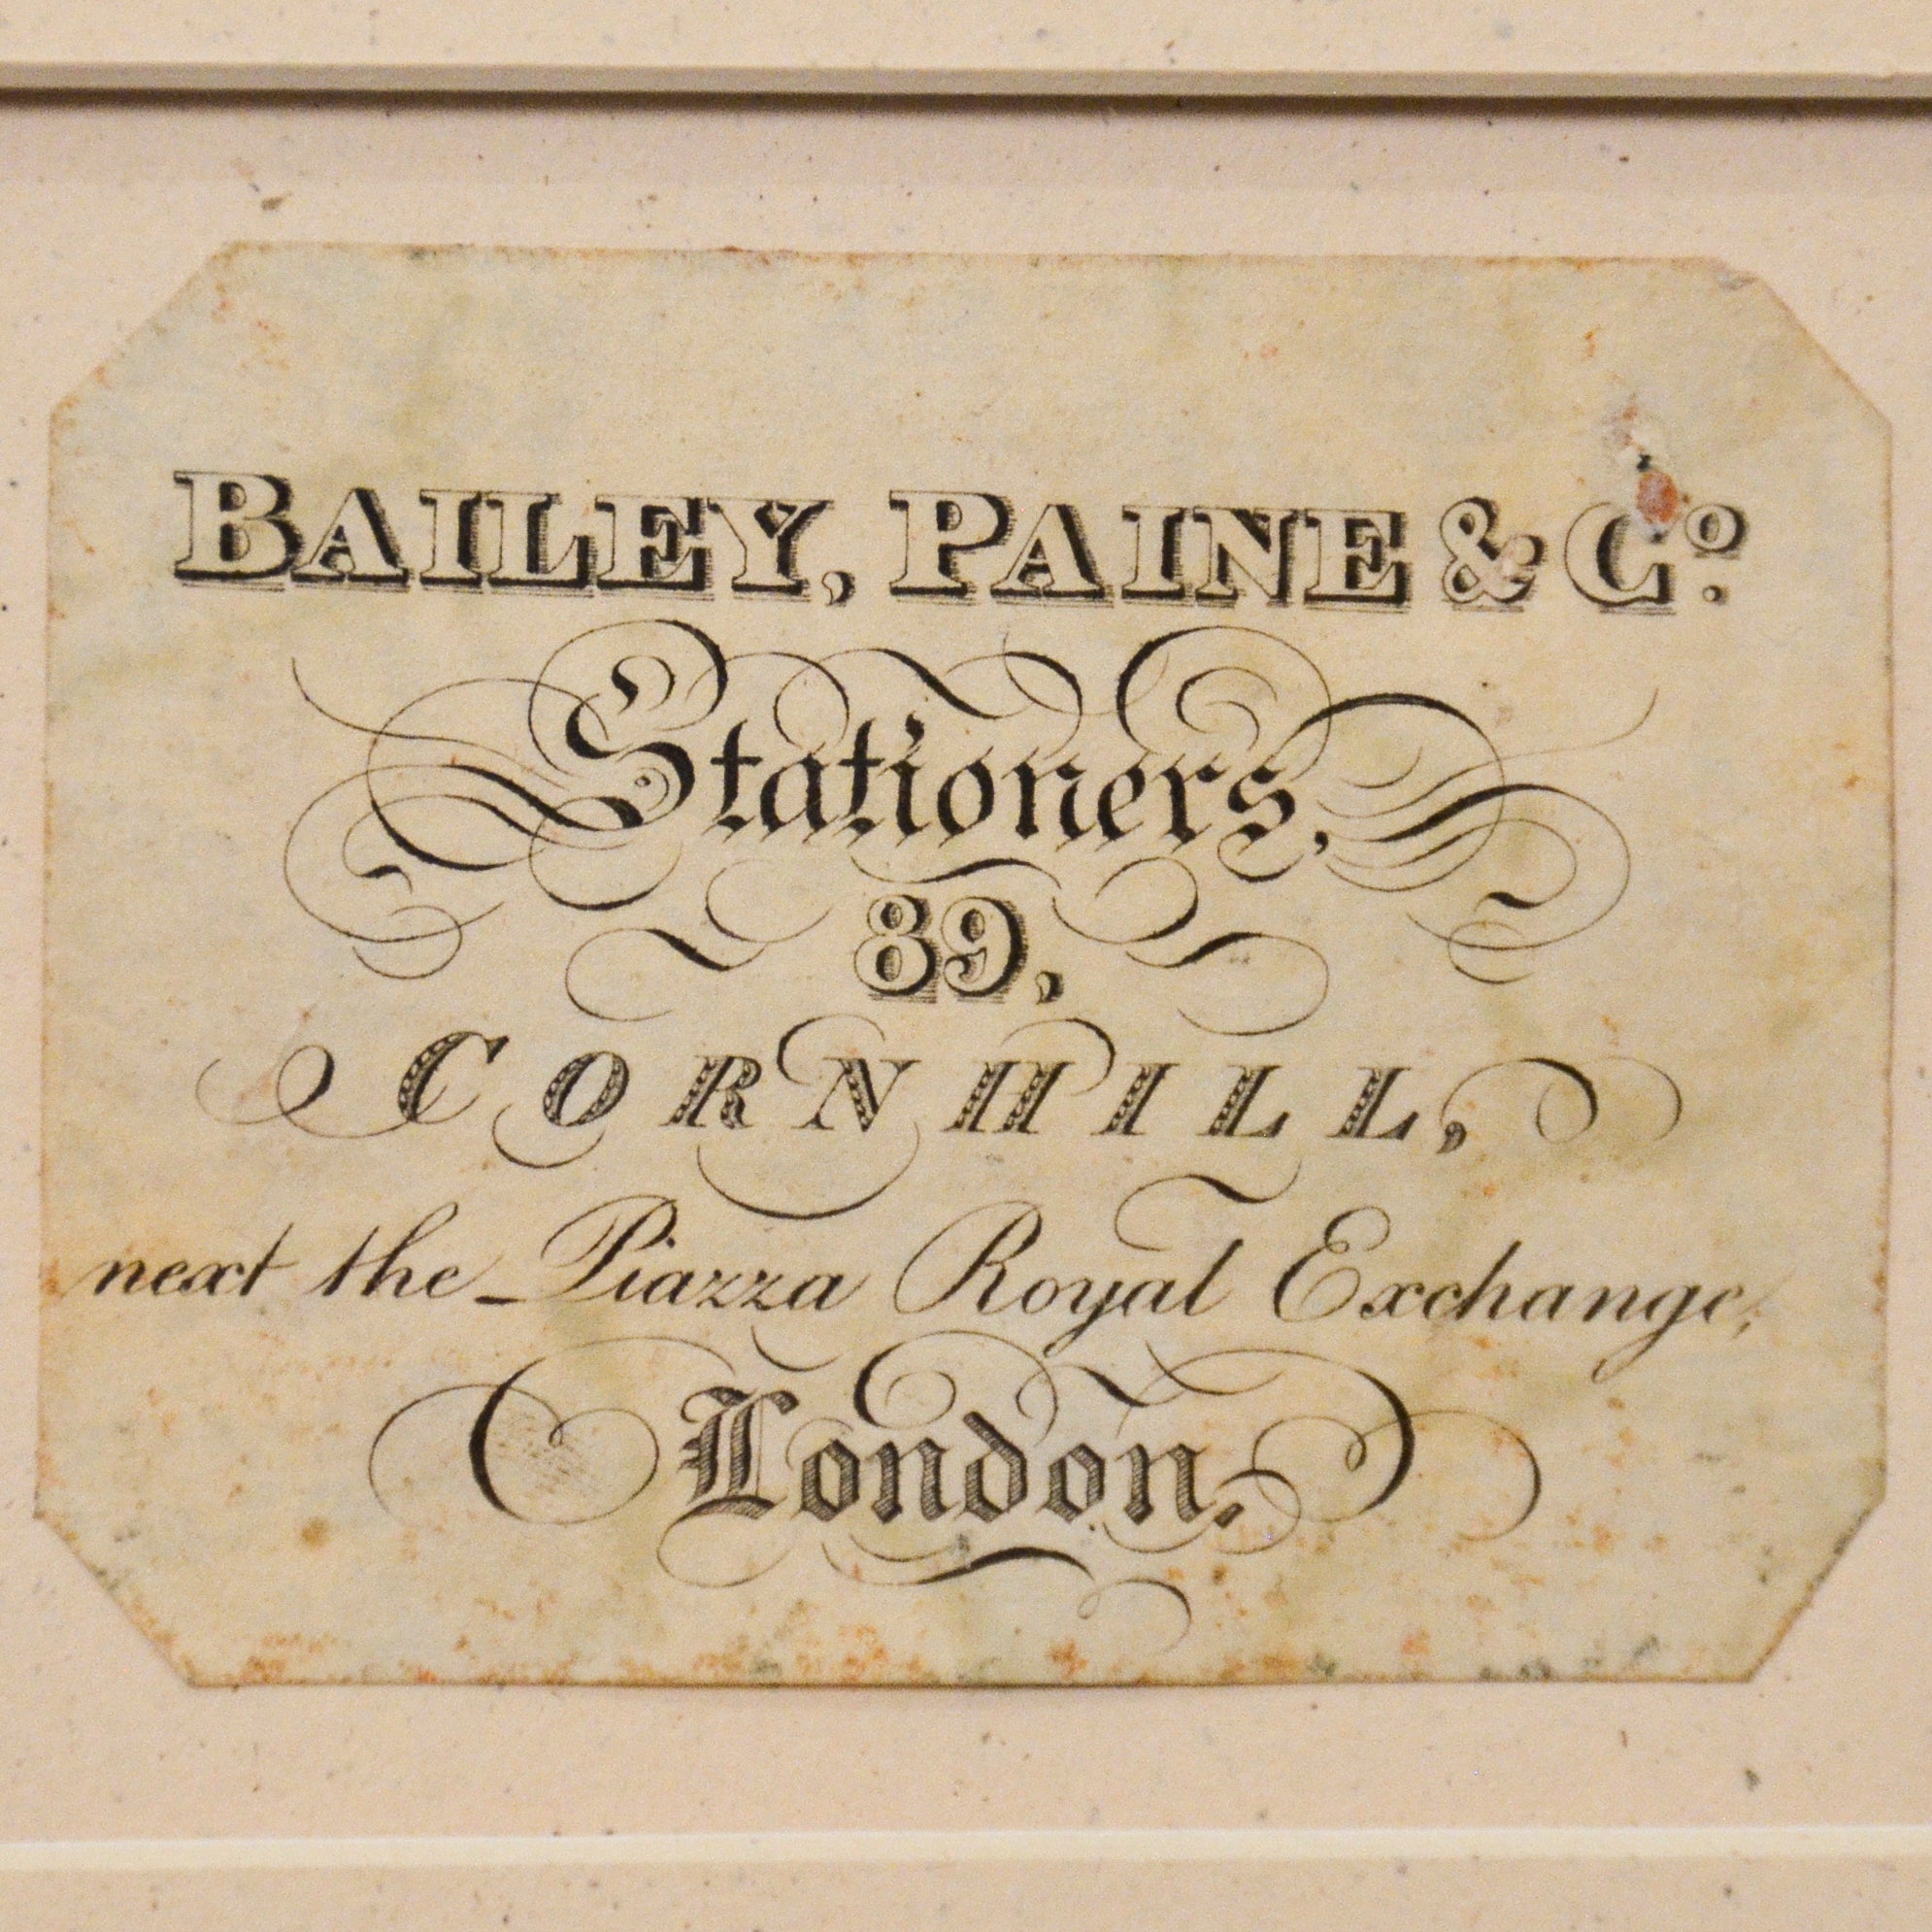 BAILEY, PAINE & Co.
Stationers,
89,
CORNHILL,
next the Piazza Royal Exchange,
London.